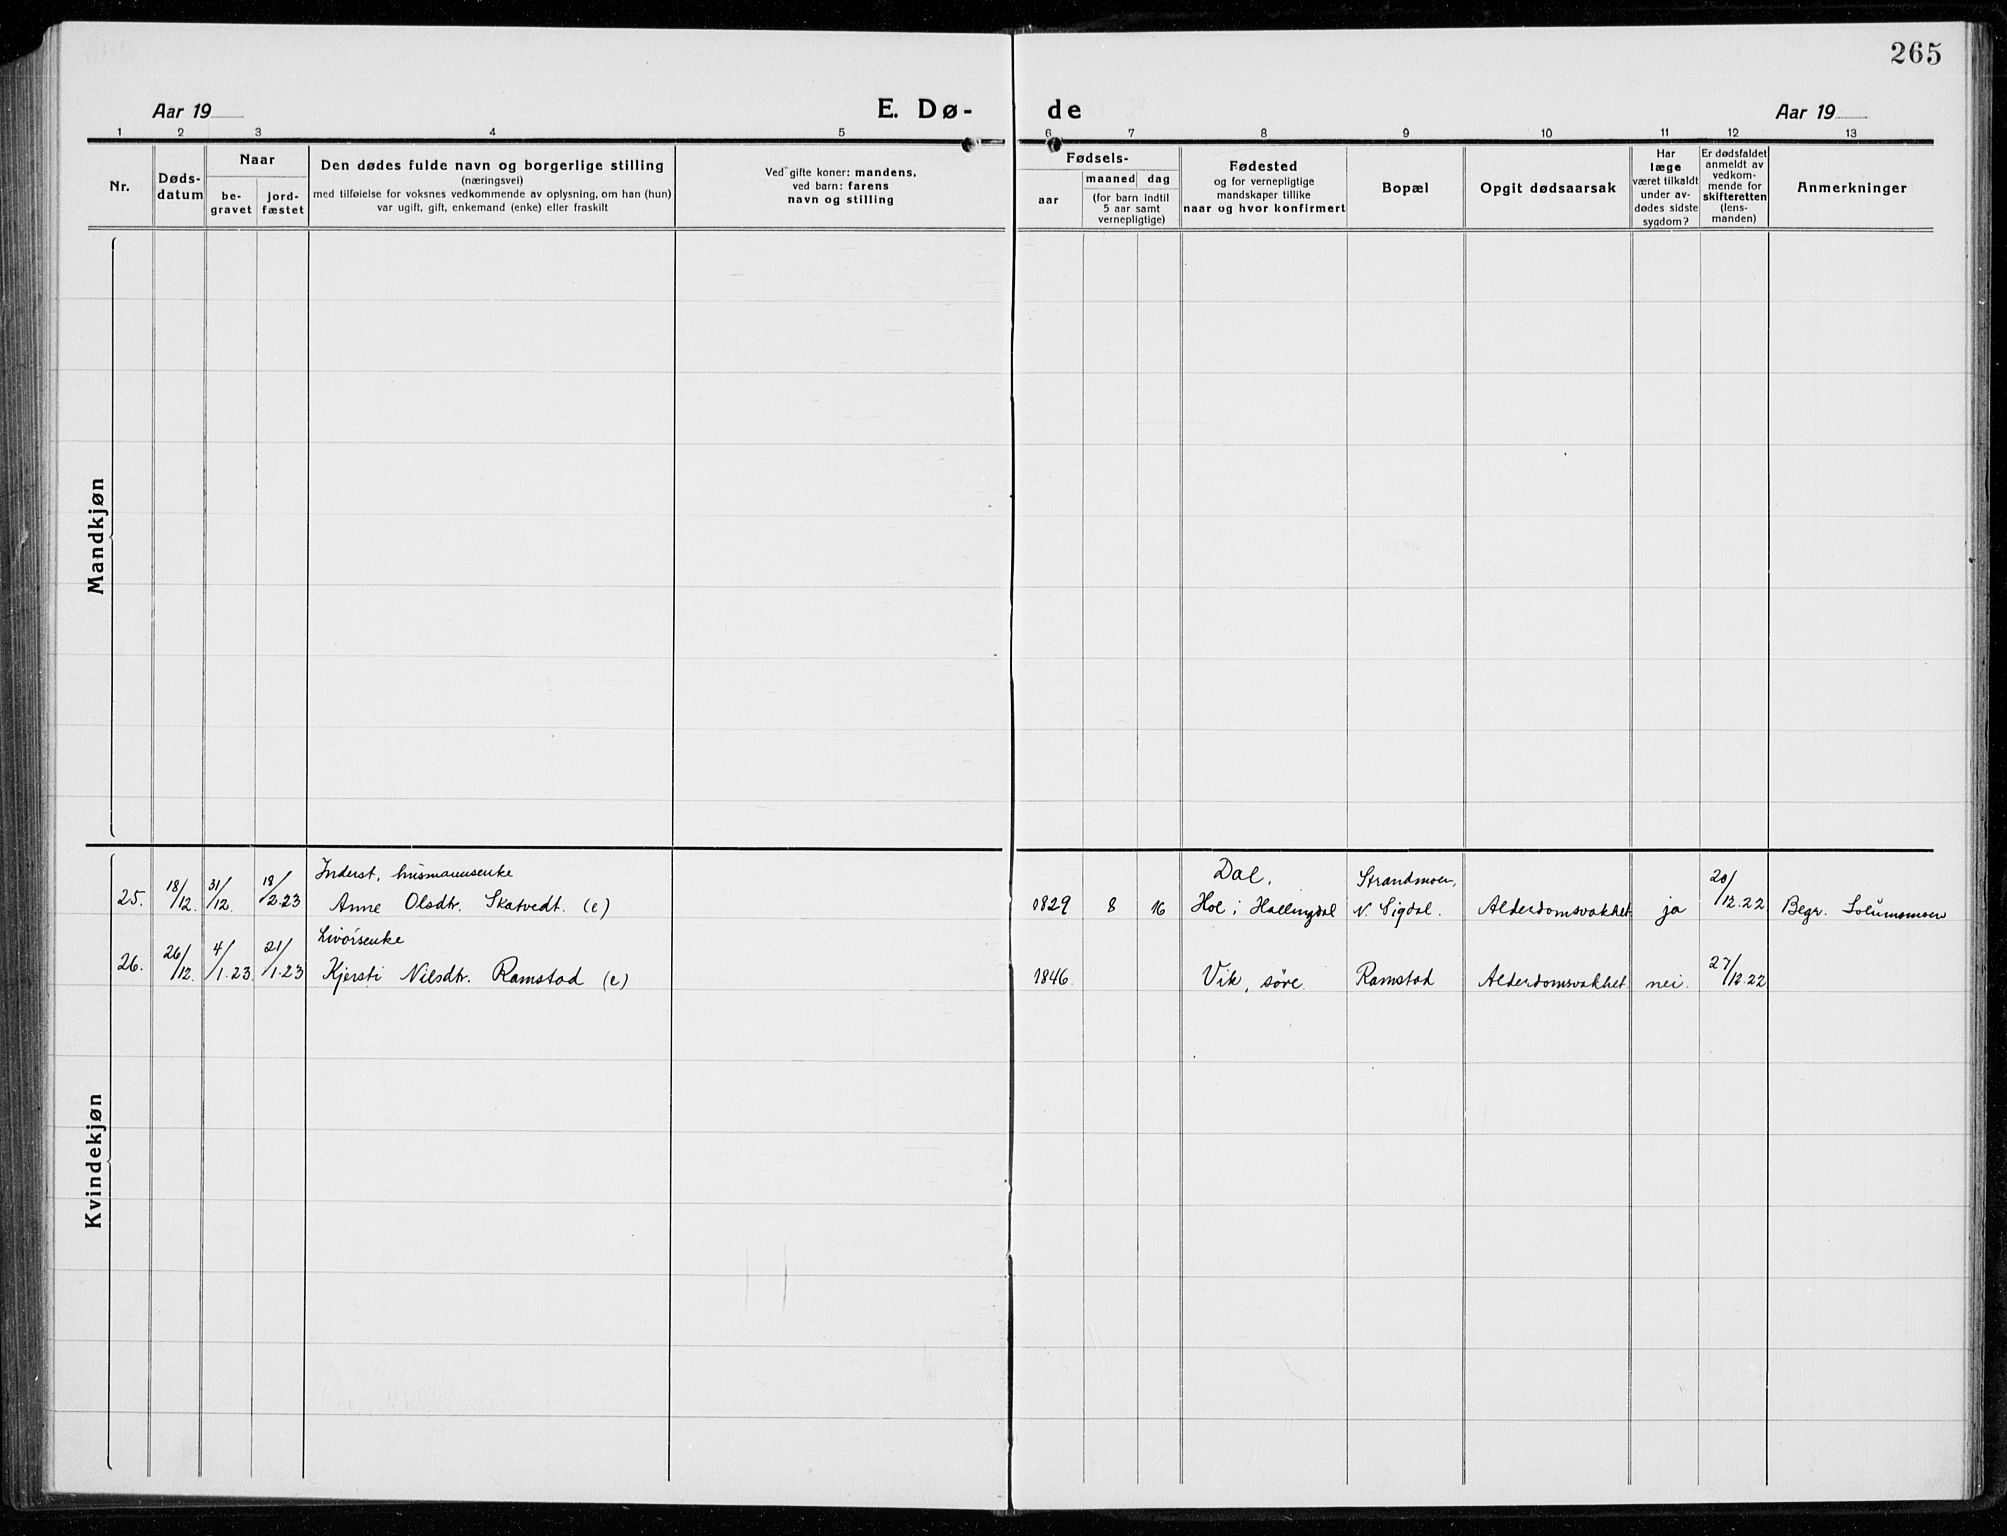 265
Aar 19
E. Dø-
de
Aar 19
1 2 3 4 5 6 7 8 9 10 11 12 13
Nr.
Døds-
datum
Naar
be-
gravet
jord-
fæstet
Den dødes fulde navn og borgerlige stilling
(næringsvei)
med tilføielse for voksnes vedkommende av oplysning, om han (hun)
var ugift, gift, enkemand (enke) eller fraskilt
Ved gifte koner: mandens,
ved barn: farens
navn og stilling
Fødsels-
aar
maaned dag
(for barn indtil
5 aar samt
vernepligtige)
Fødested
og for vernepligtige
mandskaper tillike
naar og hvor konfirmert
Bopæl
Opgit dødsaarsak
Har
læge
været tilkaldt
under av-
dødes sidste
sygdom?
Er dødsfaldet
anmeldt av
vedkom-
mende for
skifteretten
(lens-
manden)
Anmerkninger
Mandkjøn
Kvindekjøn
Inderst, husmannsenke Dal, Strandmoen,
25. 18/12. 31/12. 18/2.23 Anne Olsdtr. Skatvedt. (e) 1829 8 16 Hol i Hallingdal N. Sigdal. Alderdomsvakhet ja 20/12.22 Begr. Solumsmoen
26. 26/12. 4/1.23. 21/1.23 Kjersti Nilsdtr. Ramstad (e) 1846. Vik, søre. Ramstad Alderdomsvakhet. nei. 27/12.22